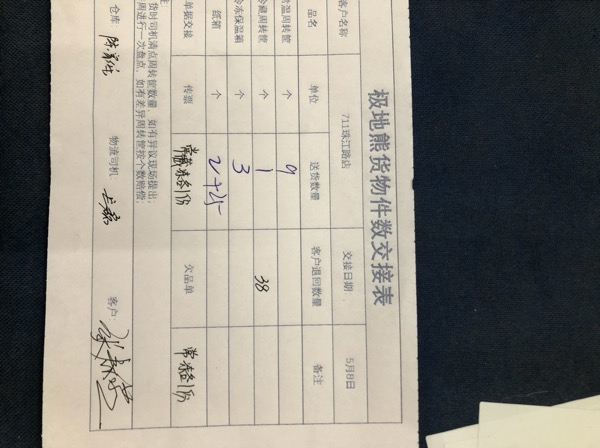 极地熊货物件数交接表
客户名称 711珠江路店 交接日期: 5月8日
品名 单位 送货数量 客户退回数量 备注
常温周转筐 个 9
冷藏周转筐 个 1 38
冷冻保温箱 个 3
纸箱 个 2+25
单据交接 传票 常藏冻各1份 欠品单 常冻各1份
货时司机清点周转筐数量,如有异议现场提出,
周进行一次盘点,如有差异周转筐按个数赔偿。
仓库: 物流司机: 客户: